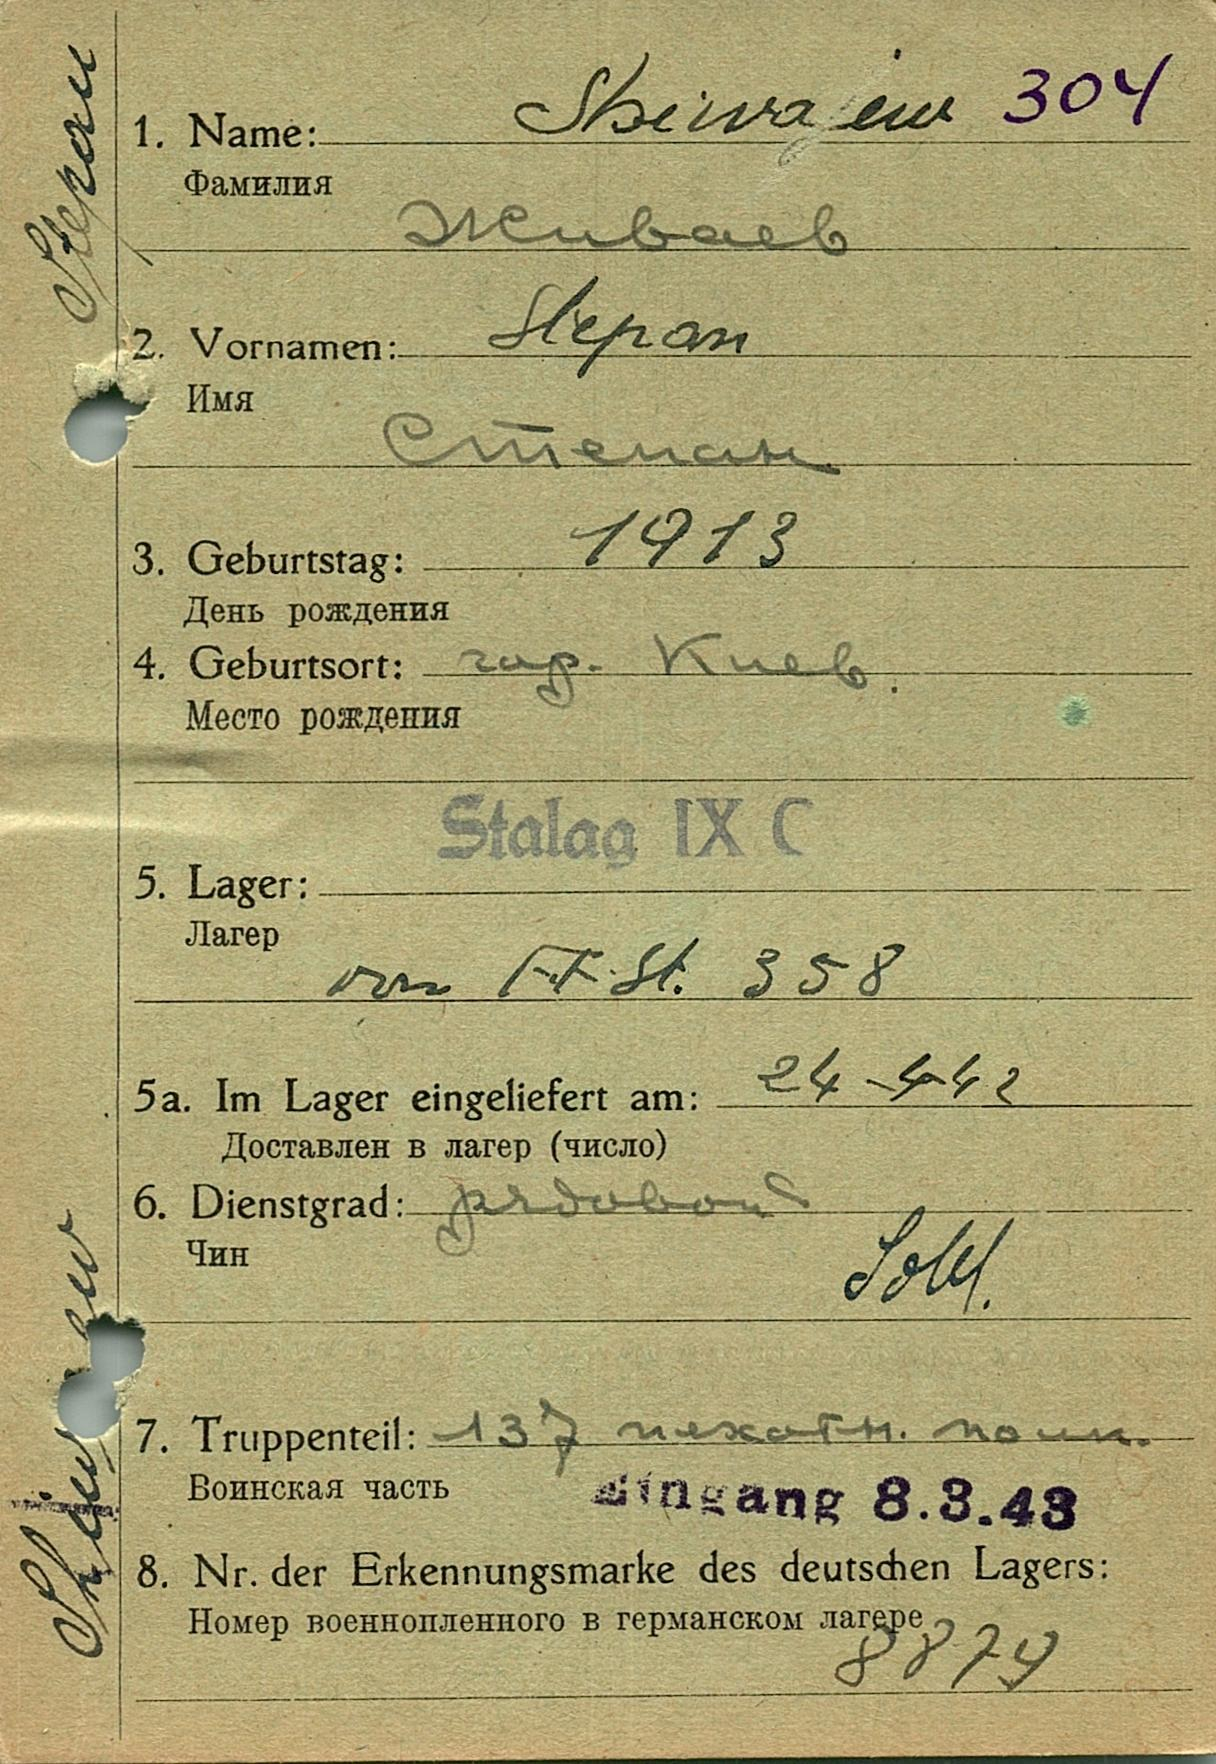 304
1. Name: Shiwajew
Фамилия
Живаев
2. Vornamen: Stepan
Имя
Степан
3. Geburtstag: 1913
День рождения
4. Geburtsort: гор. Киев.
Место рождения
Stalag IX C
5. Lager:
Лагер
von F.F. St. 358
5a. Im Lager eingeliefert am: 24-4 42
Доставлен в лагер (число)
6. Dienstgrad: рядовой
Чин
Sold.
7. Truppenteil: 137 пехотн. полк.
Воинская часть
Eingang 8.3.43
8. Nr. der Erkennungsmarke des deutschen Lagers:
Номер военнопленного в германском лагере
8879
Shiwajew
Stepan